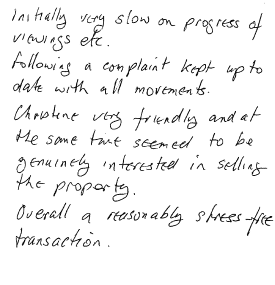 Initially very slow on progress of
viewings etc.
Following a complaint kept up to
date with all movements.
Christine very friendly and at
the same time seemed to be
genuinely interested in selling
the property.
Overall a reasonably stress-free
transaction.